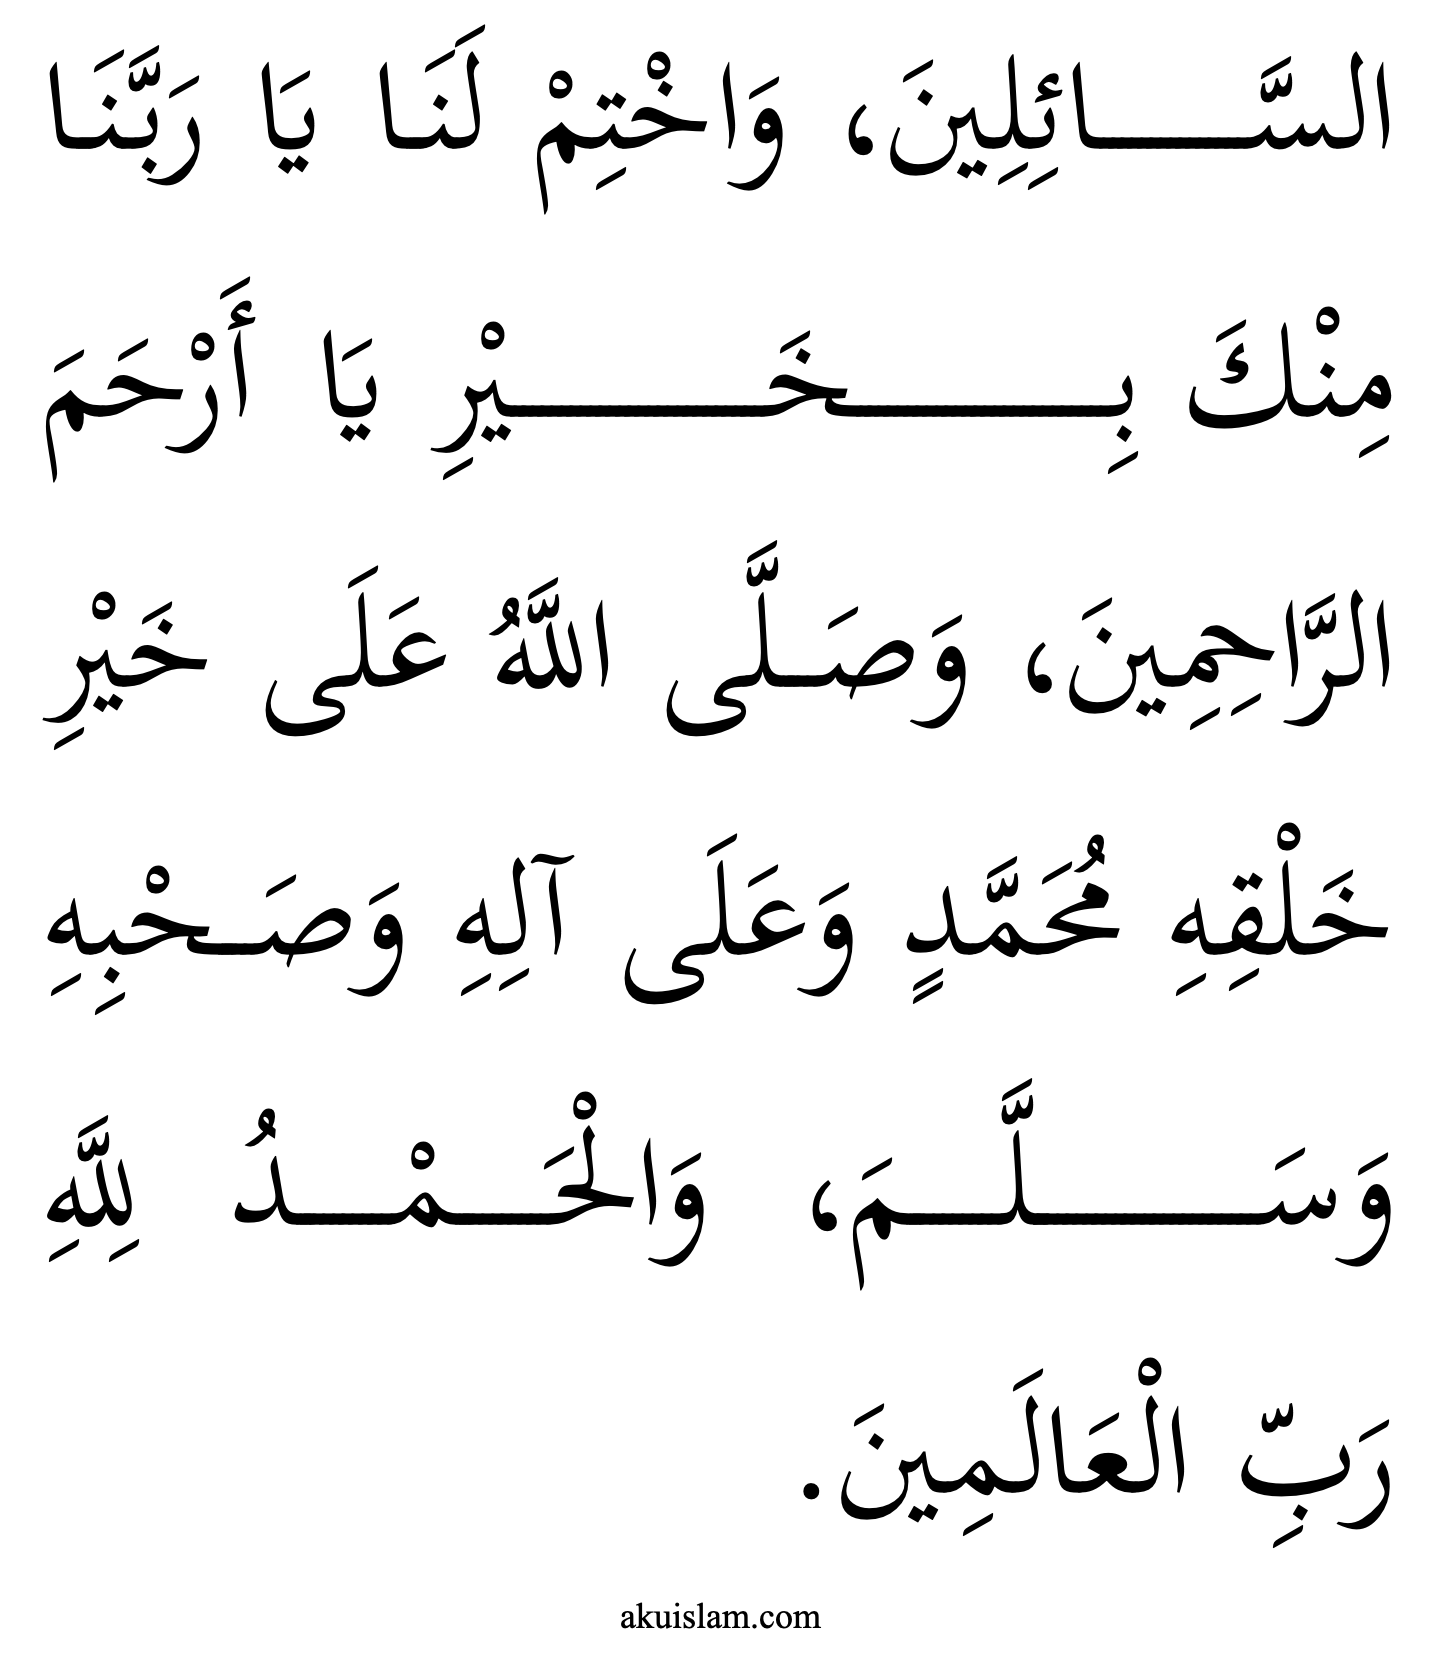 السَّائِلِينَ، وَاخْتِمْ لَنَا يَا رَبَّنَا
مِنْكَ بِخَيْرِ يَا أَرْحَمَ
الرَّاحِمِينَ، وَصَلَّى اللَّهُ عَلَى خَيْرِ
خَلْقِهِ مُحَمَّدٍ وَعَلَى آلِهِ وَصَحْبِهِ
وَسَلَّمَ، وَالْحَمْدُ لِلَّهِ
رَبِّ الْعَالَمِينَ.
akuislam.com